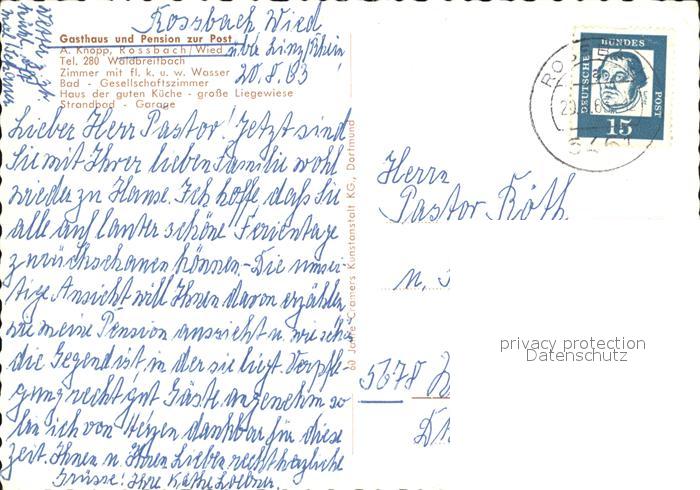 Rossbach Wied
Gasthaus und Pension zur Post
A. Knopp, Rossbach/Wied über Linz/Rhein
Tel. 280 Waldbreitbach
20.8.63
Zimmer mit fl. k. u. w. Wasser
Bad - Gesellschaftszimmer
Haus der guten Küche - große Liegewiese
Strandbad - Garage
Lieber Herr Pastor! Jetzt sind
Sie mit Ihrer lieben Familie wohl
wieder zu Hause. Ich hoffe, daß Sie
alle auf lauter schöne Ferientage
zurückschauen können. Die umsei-
tige Ansicht will Ihnen davon erzählen
wie meine Pension aussieht u. wie schön
die Gegend ist, in der sie liegt. Verpfle-
gung recht gut Gäste angenehm so
bin ich von Herzen dankbar für diese
Zeit. Ihnen u. Ihren Lieben recht herzliche
Grüsse! Ihre Käthe
60 Jahre Cramers Kunstanstalt KG., Dortmund
DEUTSCHE BUNDES POST
15
Herrn
Pastor Röth
5678
privacy protection
Datenschutz